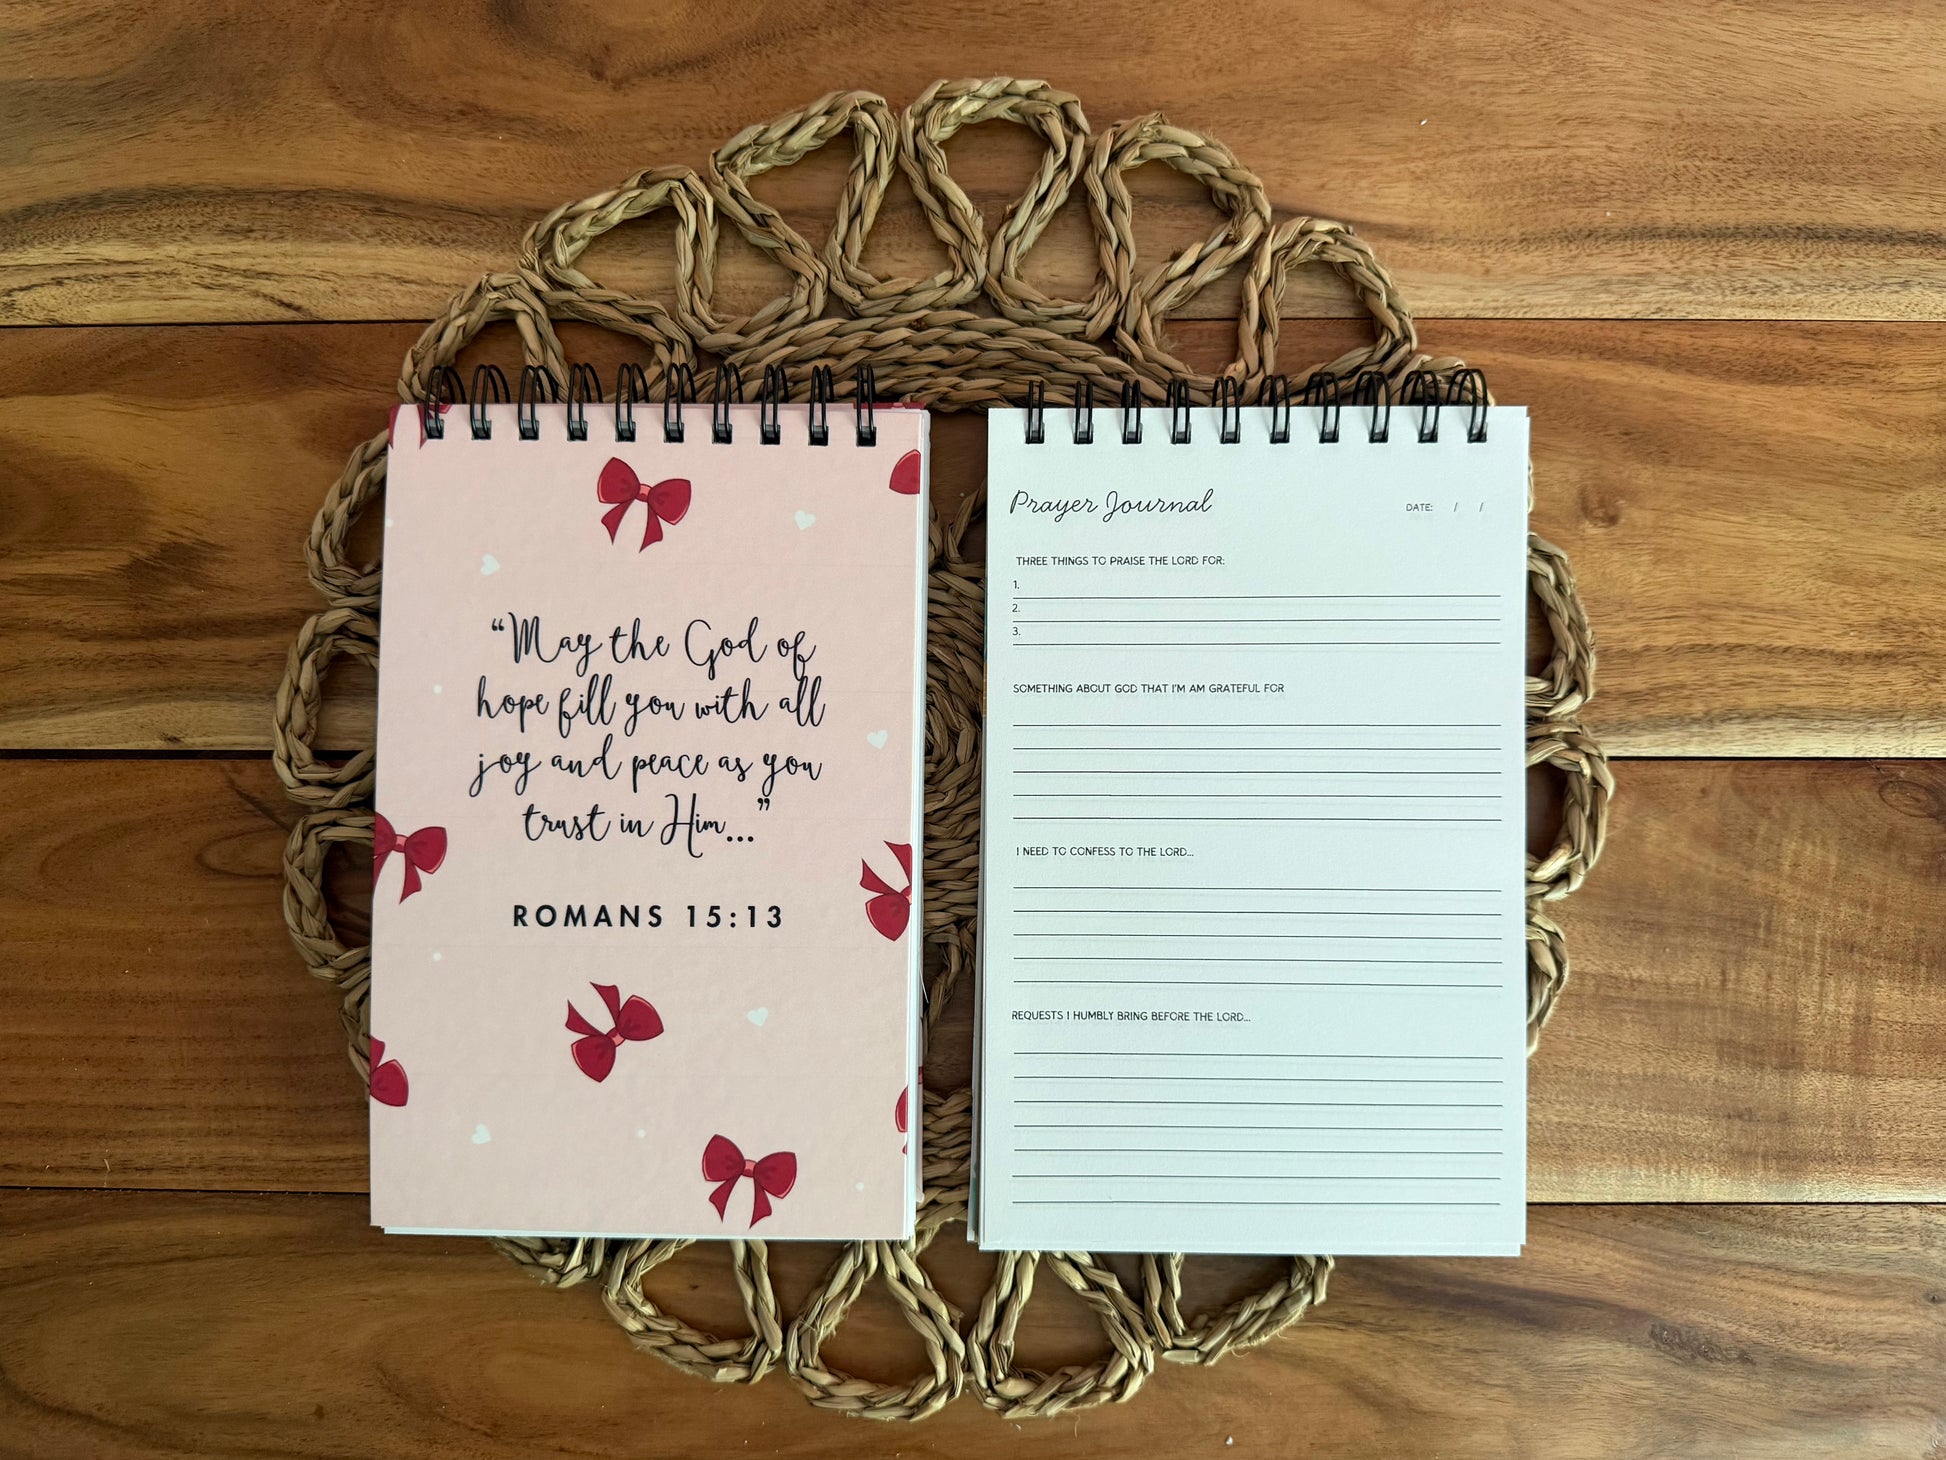 “May the God of
hope fill you with all
joy and peace as you
trust in Him...”
ROMANS 15:13
Prayer Journal
DATE: / /
THREE THINGS TO PRAISE THE LORD FOR:
1.
2.
3.
SOMETHING ABOUT GOD THAT I'M AM GRATEFUL FOR
I NEED TO CONFESS TO THE LORD...
REQUESTS I HUMBLY BRING BEFORE THE LORD...